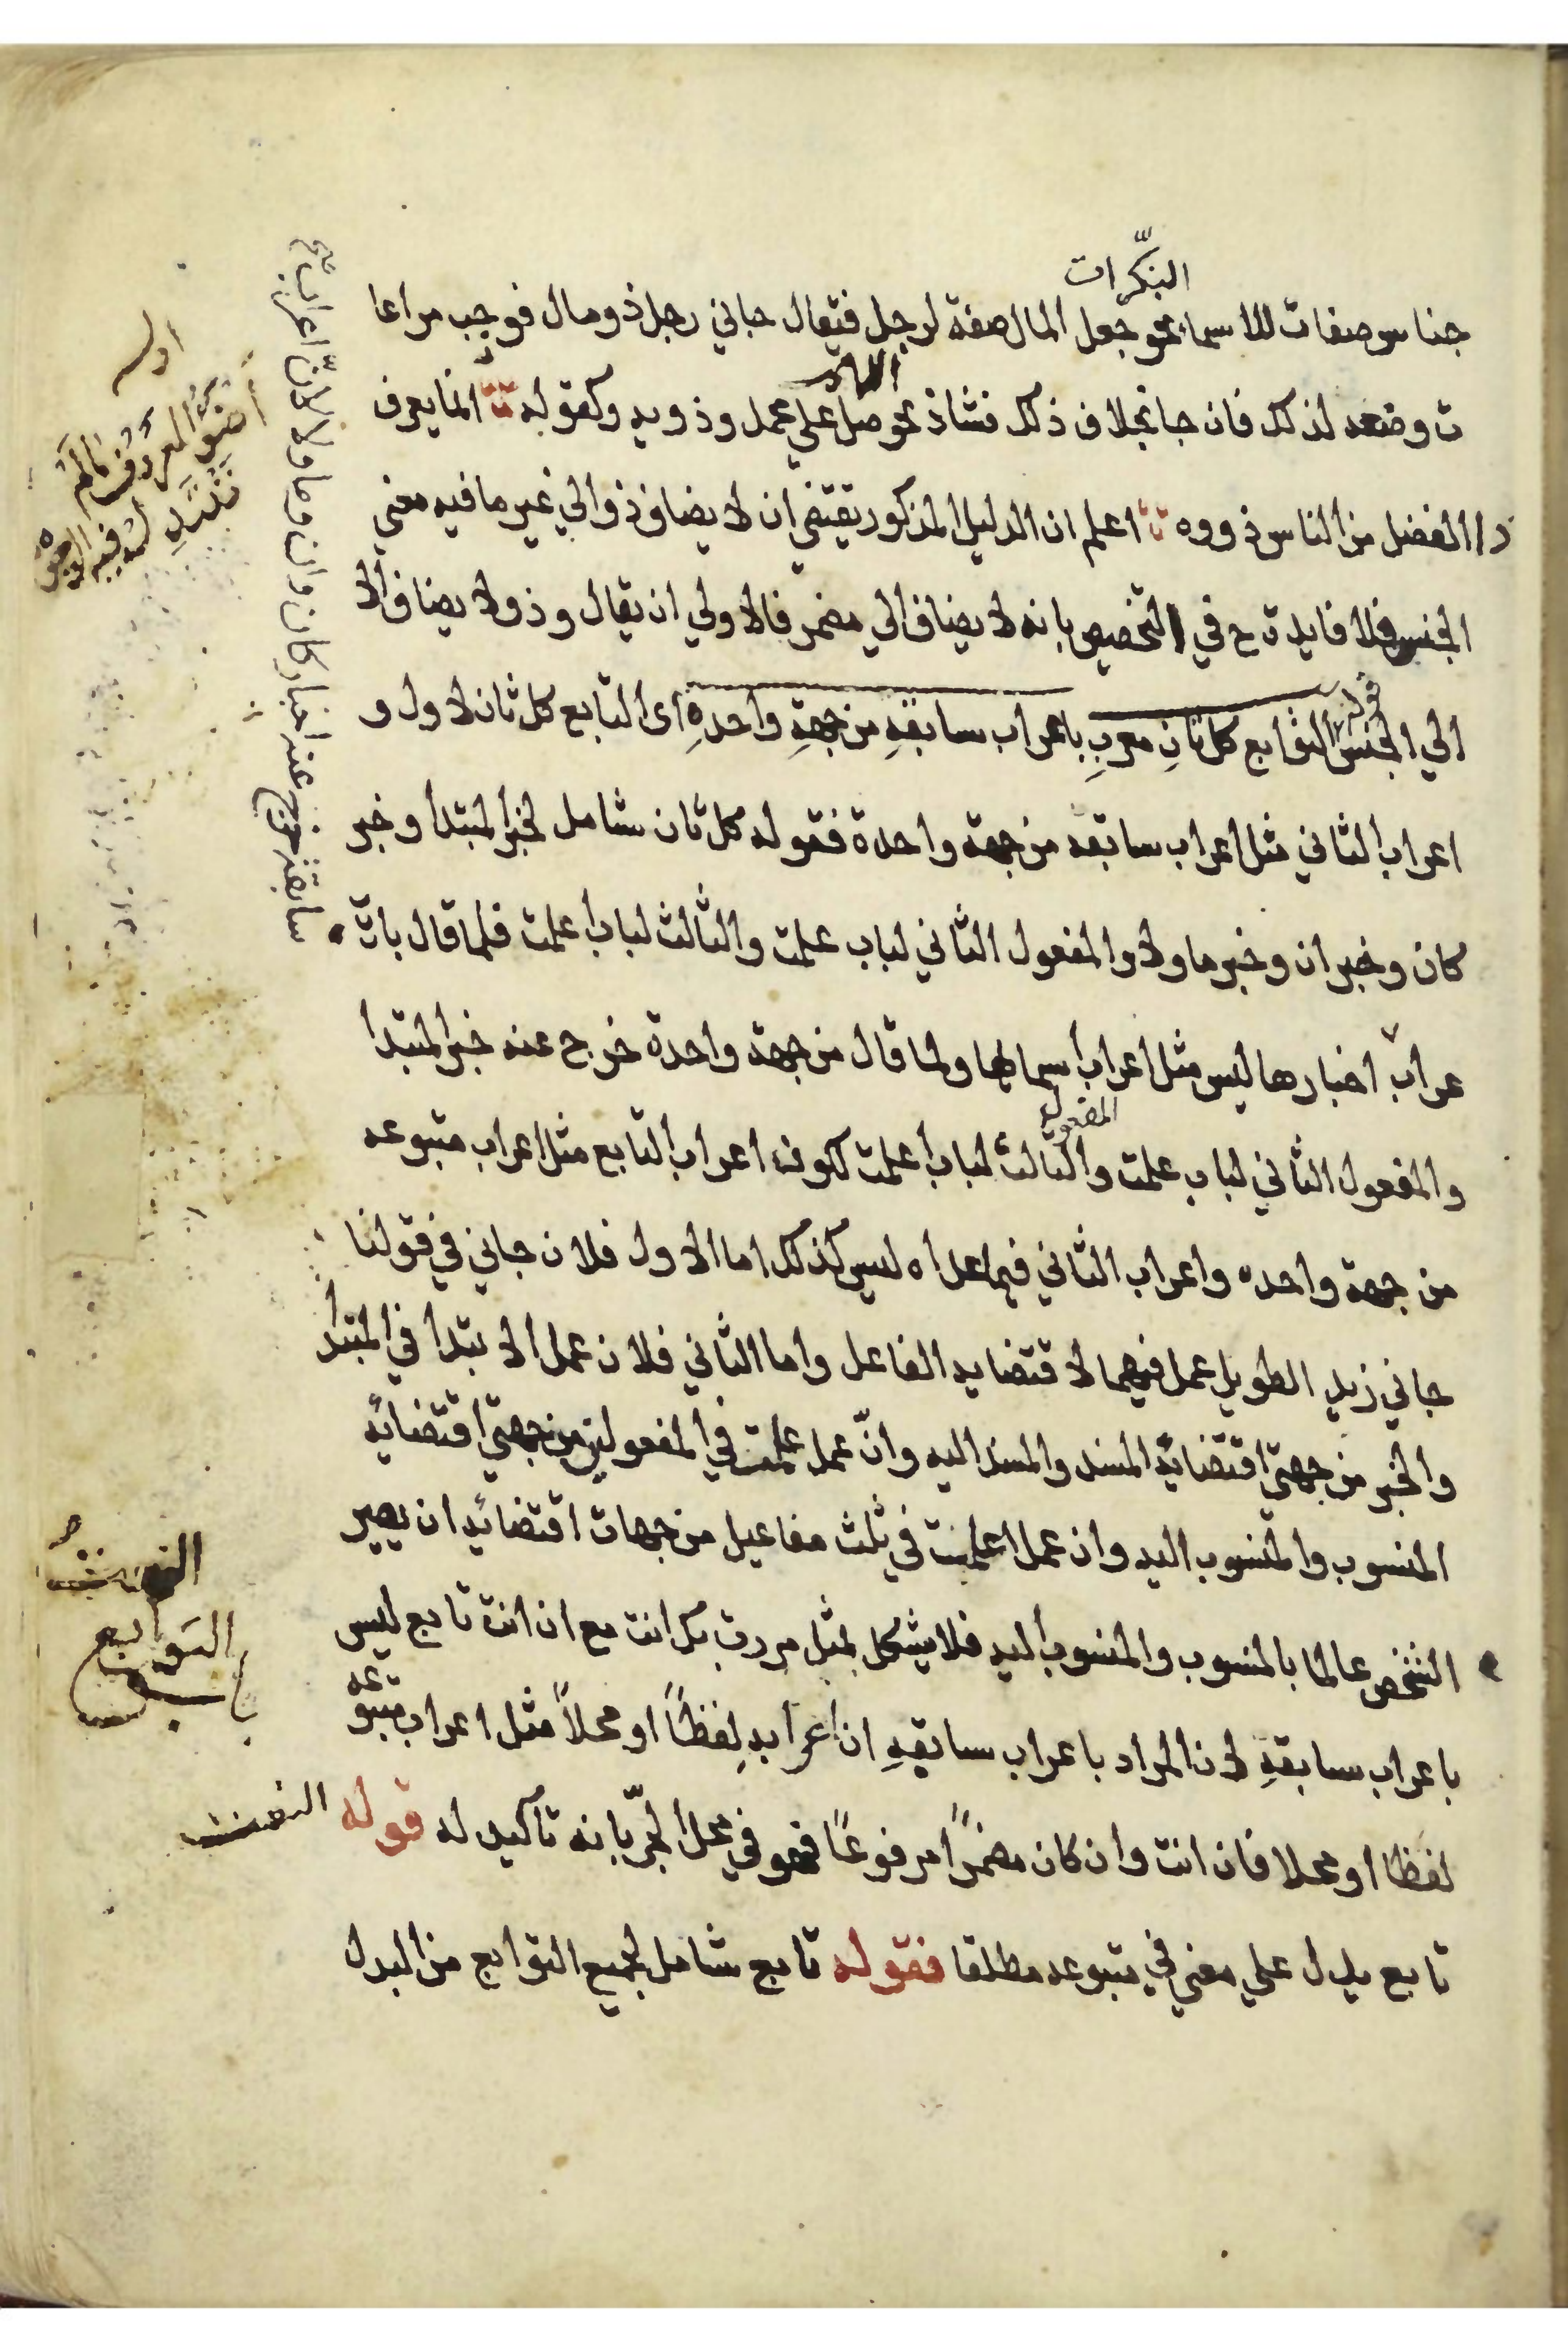 النكرات
جناس صفات للاسماء نحو جعل المال صفة لرجل فيقال جاني رجل ذو مال فوجب مراعا
ت وضعه لذلك فان جا بخلاف ذلك فشاذ نحو صل علي محمد وذويه وكقوله انما يعرف
ذا الفضل من الناس ذووه اعلم ان الدليل المذكور يقتضي ان لا يضاف ذو الي غير ما فيه معني
الجنس فلا فايدة ح في التخصيص بانه لا يضاف الي مضمر فالاولي ان يقال وذو لا يضاف الا
الي الجنس قوله التوابع كل ثانٍ معربٍ باعراب سابقهِ من جهةٍ واحدةٍ اى التابع كل ثان لاول و
اعراب الثاني مثل اعراب سابقه من جهة واحدة فقوله كل ثان شامل لخبر المبتدأ وخبر
كان وخبر ان وخبر ما ولا والمفعول الثاني لباب علمت والثالث لباب اعلمت فلما قال با
عراب اخبارها ليس مثل اعراب اسمائها ولما قال من جهة واحدة خرج عنه خبر المبتدا
المفعول
والمفعول الثاني لباب علمت والثالث لباب اعلمت لكون اعراب التابع مثل اعراب متبوعه
من جهة واحده واعراب الثاني فيما عداه ليس كذلك اما الاول فلان جاني في قولنا
جاني زيد الطويل عمل فيهما لاقتضايه الفاعل واما الثاني فلان عمل الابتدا في المبتدأ
والخبر من جهتي اقتضائه المسند والمسند اليه وانّ عمل علمت في المفعولين من جهتي اقتضائه
المنسوب والمنسوب اليه وان عمل اعلمت في ثلث مفاعيل من جهات اقتضائه ان يصير
الشخص عالما بالمنسوب والمنسوب اليه فلا يشكل بمثل مررت بك انت مع ان انت تابع ليس
باعراب سابقهِ لان المراد باعراب سابقهِ ان اعرابهِ لفظاً او محلاً مثل اعراب متبوعه
لفظا او محلا فان انت وان كان مضمرًا مرفوعًا فهو في محل الجرّ بانه تأكيد له قوله النعت
تابع يدل علي معني في متبوعه مطلقا فقوله تابع شامل لجميع التوابع من البدل
اوله
سابقه خرج عنه اخبار كان وان وما ولا لانّ اعراب
التوابع